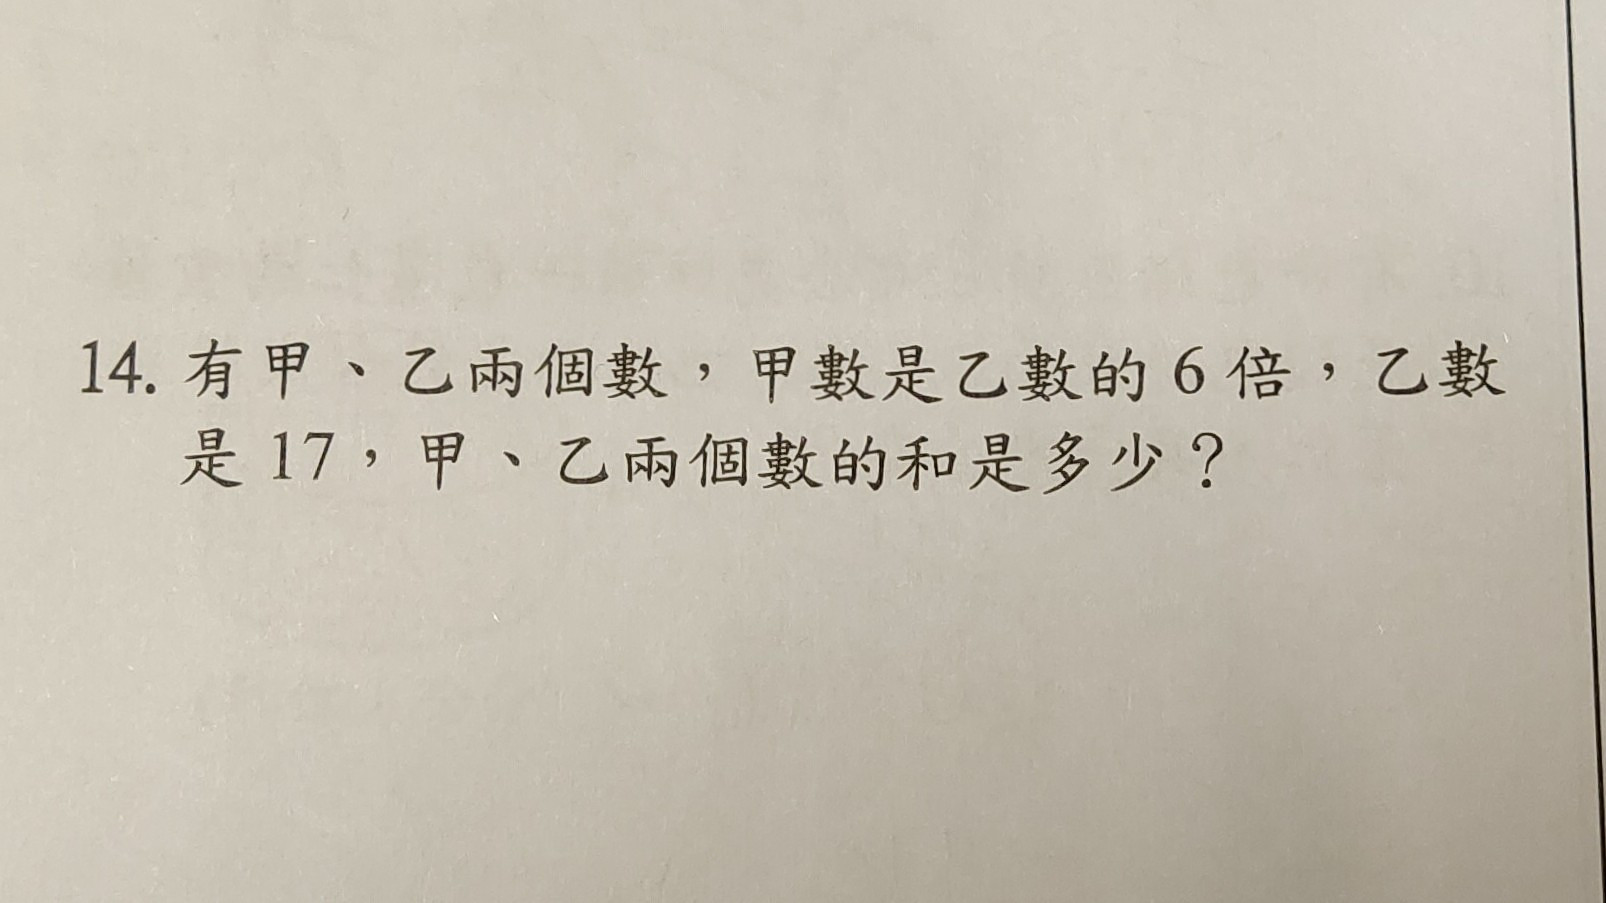 14. 有甲、乙兩個數，甲數是乙數的 6 倍，乙數
是 17，甲、乙兩個數的和是多少？